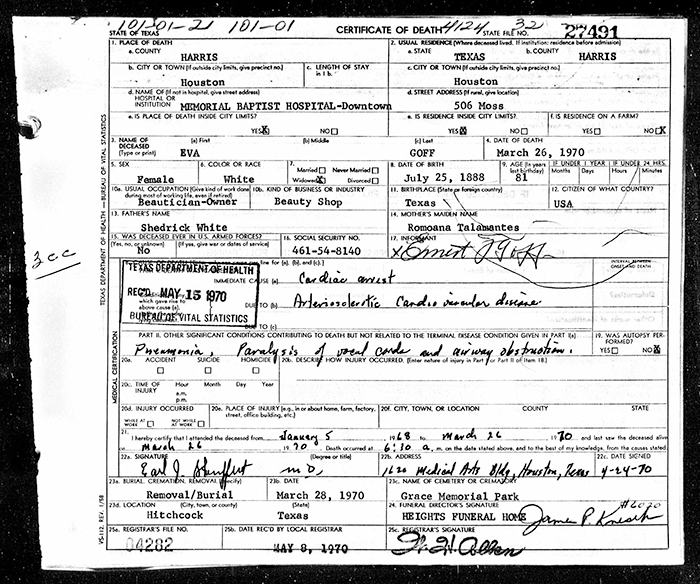 101-01-21 101-01 CERTIFICATE OF DEATH 4124 32
STATE OF TEXAS STATE FILE NO. 27491
1. PLACE OF DEATH 2. USUAL RESIDENCE (Where deceased lived. If institution: residence before admission)
a. COUNTY HARRIS a. STATE TEXAS b. COUNTY HARRIS
b. CITY OR TOWN (If outside city limits, give precinct no.) Houston c. LENGTH OF STAY in 1 b. c. CITY OR TOWN (If outside city limits, give precinct no.) Houston
d. NAME OF (If not in hospital, give street address) HOSPITAL OR INSTITUTION MEMORIAL BAPTIST HOSPITAL-Downtown d. STREET ADDRESS (If rural, give location) 506 Moss
e. IS PLACE OF DEATH INSIDE CITY LIMITS? YES X NO e. IS RESIDENCE INSIDE CITY LIMITS? YES X NO f. IS RESIDENCE ON A FARM? YES NO X
3. NAME OF DECEASED (Type or print) (a) First EVA (b) Middle (c) Last GOFF 4. DATE OF DEATH March 26, 1970
5. SEX Female 6. COLOR OR RACE White 7. Married Never Married Widowed X Divorced 8. DATE OF BIRTH July 25, 1888 9. AGE (In years last birthday) 81 IF UNDER 1 YEAR Months Days IF UNDER 24 HRS. Hours Minutes
10a. USUAL OCCUPATION (Give kind of work done during most of working life, even if retired) Beautician-Owner 10b. KIND OF BUSINESS OR INDUSTRY Beauty Shop 11. BIRTHPLACE (State or foreign country) Texas 12. CITIZEN OF WHAT COUNTRY? USA
13. FATHER'S NAME Shedrick White 14. MOTHER'S MAIDEN NAME Romoana Talamantes
15. WAS DECEASED EVER IN U.S. ARMED FORCES? (Yes, no, or unknown) No (If yes, give war or dates of service) 16. SOCIAL SECURITY NO. 461-54-8140 17. INFORMANT X Ernest J Goff
3cc
TEXAS DEPARTMENT OF HEALTH
REC'D MAY 15 1970
BUREAU OF VITAL STATISTICS
line for (a), (b), and (c). INTERVAL BETWEEN ONSET AND DEATH
IMMEDIATE CAUSE (a) Cardiac arrest
which gave rise to above cause (a), DUE TO (b) Arteriosclerotic Cardio vascular disease
DUE TO (c)
PART II. OTHER SIGNIFICANT CONDITIONS CONTRIBUTING TO DEATH BUT NOT RELATED TO THE TERMINAL DISEASE CONDITION GIVEN IN PART I(a) 19. WAS AUTOPSY PERFORMED? YES NO X
Pneumonia, Paralysis of vocal cords and airway obstruction.
20a. ACCIDENT SUICIDE HOMICIDE 20b. DESCRIBE HOW INJURY OCCURRED. (Enter nature of injury in Part I or Part II of Item 18.)
20c. TIME OF INJURY Hour a.m. p.m. Month Day Year
20d. INJURY OCCURRED WHILE AT WORK NOT WHILE AT WORK 20e. PLACE OF INJURY (e.g., in or about home, farm, factory, street, office building, etc.) 20f. CITY, TOWN, OR LOCATION COUNTY STATE
21. I hereby certify that I attended the deceased from January 5 1968 to March 26 1970 and last saw the deceased alive
on March 26 1970 Death occurred at 6:30 a. m. on the date stated above, and to the best of my knowledge, from the causes stated
22a. SIGNATURE (Degree or title) M D 22b. ADDRESS 1620 Medical Arts Bldg, Houston, Texas 22c. DATE SIGNED 4-24-70
23a. BURIAL, CREMATION, REMOVAL (Specify) Removal/Burial 23b. DATE March 28, 1970 23c. NAME OF CEMETERY OR CREMATORY Grace Memorial Park
23d. LOCATION (City, town, or county) Hitchcock (State) Texas 24. FUNERAL DIRECTOR'S SIGNATURE HEIGHTS FUNERAL HOME James P. #6020
25a. REGISTRAR'S FILE NO. 04282 25b. DATE REC'D BY LOCAL REGISTRAR MAY 8, 1970 25c. REGISTRAR'S SIGNATURE
TEXAS DEPARTMENT OF HEALTH—BUREAU OF VITAL STATISTICS
MEDICAL CERTIFICATION
VS-112, REV. 1/58